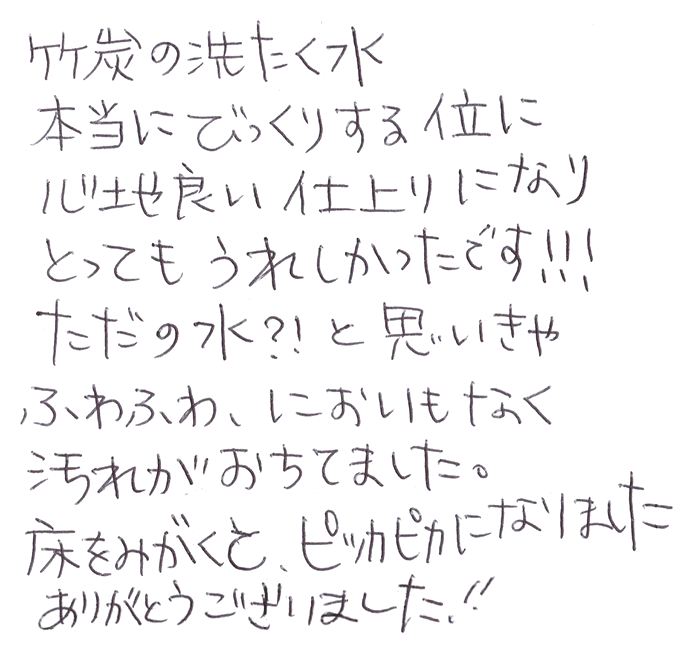 竹炭の洗たく水
本当にびっくりする位に
心地良い仕上りになり
とってもうれしかったです!!!
ただの水?!と思いきや
ふわふわ、においもなく
汚れがおちてました。
床をみがくと、ピッカピカになりました
ありがとうございました!!